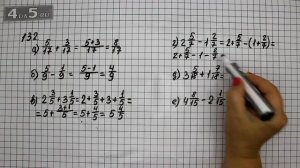 4·A·5·K
132
а) 5/17 + 3/17 = 5+3/17 = 8/17
б) 5/9 - 1/9 = 5-1/9 = 4/9
в) 2 3/5 + 3 1/5 = 2 + 3/5 + 3 + 1/5 =
= 5 + 3+1/5 = 5 + 4/5 = 5 4/5
г) 2 5/7 - 1 2/7 = 2 + 5/7 - (1 + 2/7) =
2 + 5/7 - 1 - 2/7 =
д) 3 5/18 + 1 7/18 =
е) 4 8/15 - 2 1/15